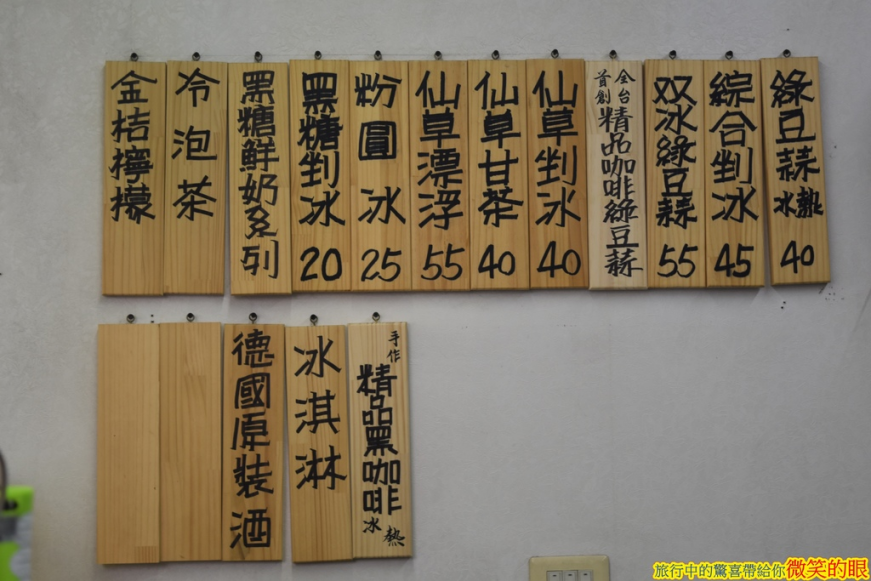 綠豆蒜冰熱40
綜合剉冰45
双冰綠豆蒜55
全台首創精品咖啡綠豆蒜
仙草剉冰40
仙草甘茶40
仙草漂浮55
粉圓冰25
黑糖剉冰20
黑糖鮮奶系列
冷泡茶
金桔檸檬
手作精品黑咖啡冰熱
冰淇淋
德國原裝酒
旅行中的驚喜帶給你微笑的眼